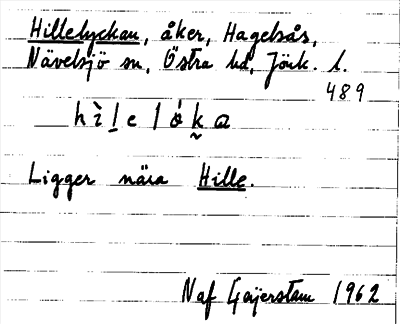 Hillelyckan, åker, Hagelsås,
Nävelsjö sn, Östra hd, Jönk. l.
489
hìlelóka
Ligger nära Hille.
Naf Gajerstam 1962